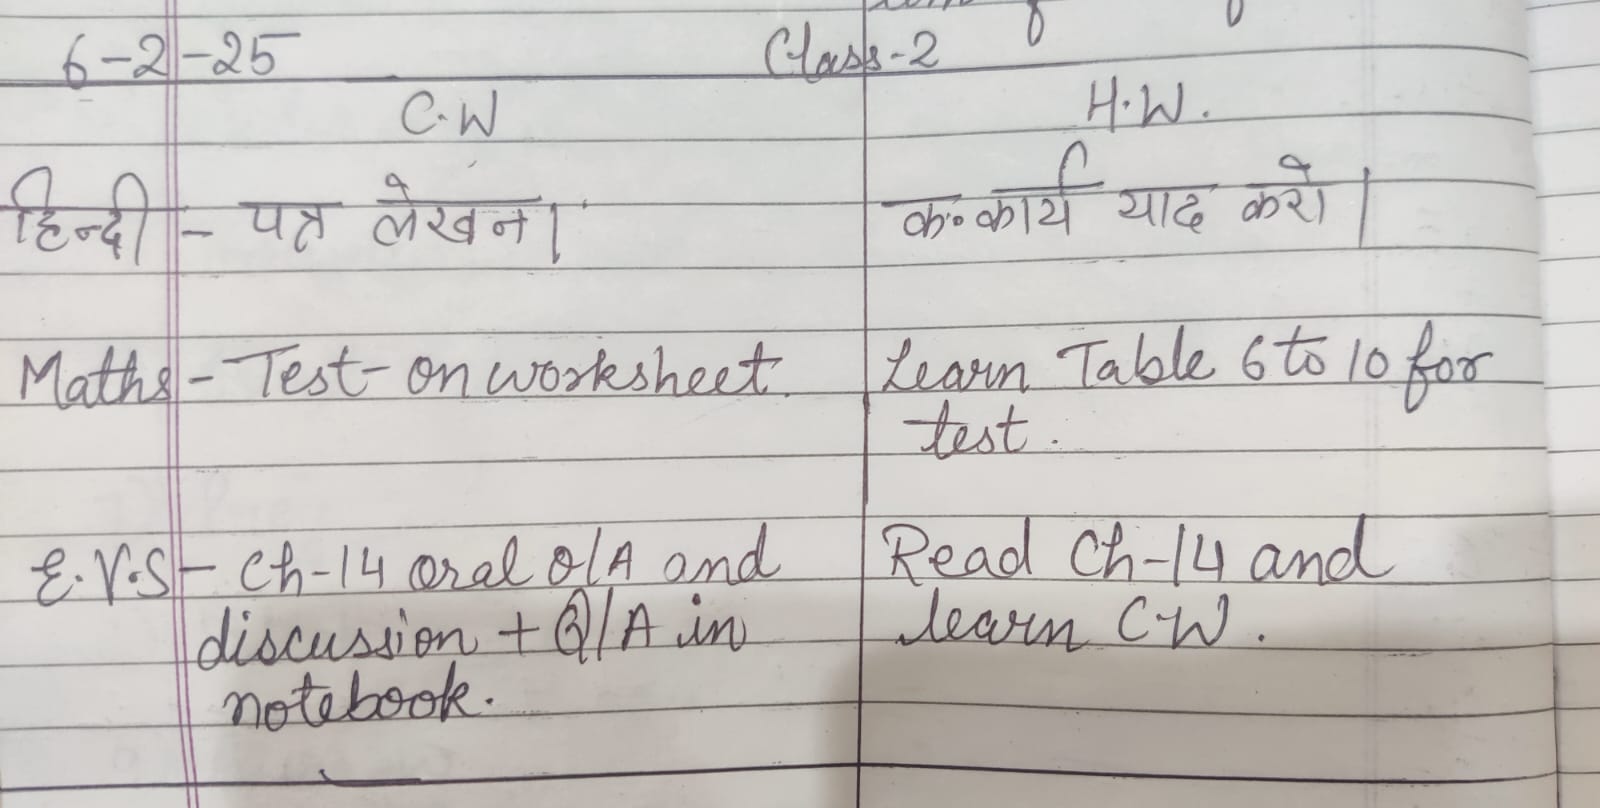 6-2-25 Class-2
C.W H.W.
हिन्दी - पत्र लेखन। क.कार्य याद करो।
Maths - Test on worksheet. Learn Table 6 to 10 for
test.
E.V.S - Ch-14 oral Q/A and Read Ch-14 and
discussion + Q/A in learn C.W.
notebook.